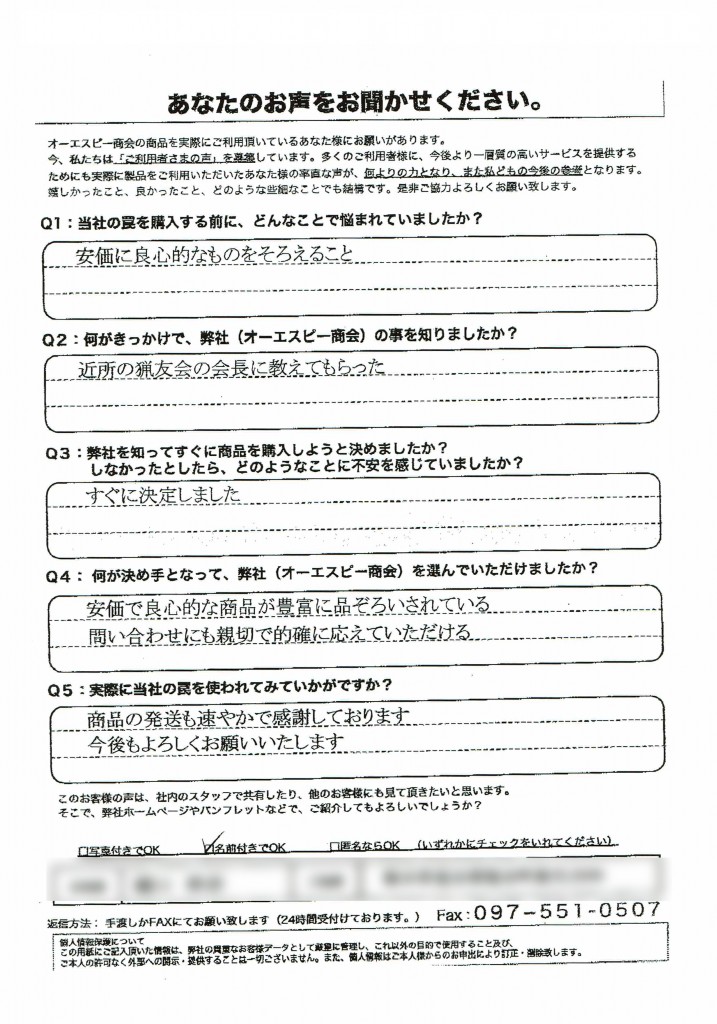 あなたのお声をお聞かせください。
オーエスピー商会の商品を実際にご利用頂いているあなた様にお願いがあります。
今、私たちは「ご利用者さまの声」を募集しています。多くのご利用者様に、今後より一層質の高いサービスを提供する
ためにも実際に製品をご使用いただいたあなた様の率直な声が、何よりの力となり、また私どもの今後の参考となります。
嬉しかったこと、良かったこと、どのような些細なことでも結構です。是非ご協力よろしくお願い致します。
Q1：当社の罠を購入する前に、どんなことで悩まれていましたか？
安価に良心的なものをそろえること
Q2：何がきっかけで、弊社（オーエスピー商会）の事を知りましたか？
近所の猟友会の会長に教えてもらった
Q3：弊社を知ってすぐに商品を購入しようと決めましたか？
しなかったとしたら、どのようなことに不安を感じていましたか？
すぐに決定しました
Q4：何が決め手となって、弊社（オーエスピー商会）を選んでいただけましたか？
安価で良心的な商品が豊富に品ぞろいされている
問い合わせにも親切で的確に応えていただける
Q5：実際に当社の罠を使われてみていかがですか？
商品の発送も速やかで感謝しております
今後もよろしくお願いいたします
このお客様の声は、社内のスタッフで共有したり、他のお客様にも見て頂きたいと思います。
そこで、弊社ホームページやパンフレットなどで、ご紹介してもよろしいでしょうか？
□写真付きでOK ☑名前付きでOK □匿名ならOK （いずれかにチェックをいれてください）
返信方法：手渡しかFAXにてお願い致します（24時間受付ております。） Fax：097-551-0507
個人情報保護について
この用紙にご記入頂いた情報は、弊社の貴重なお客様データとして厳重に管理し、これ以外の目的で使用すること及び、
ご本人の許可なく外部への開示・提供することは一切ございません。また、個人情報はご本人様からのお申出により訂正・削除致します。